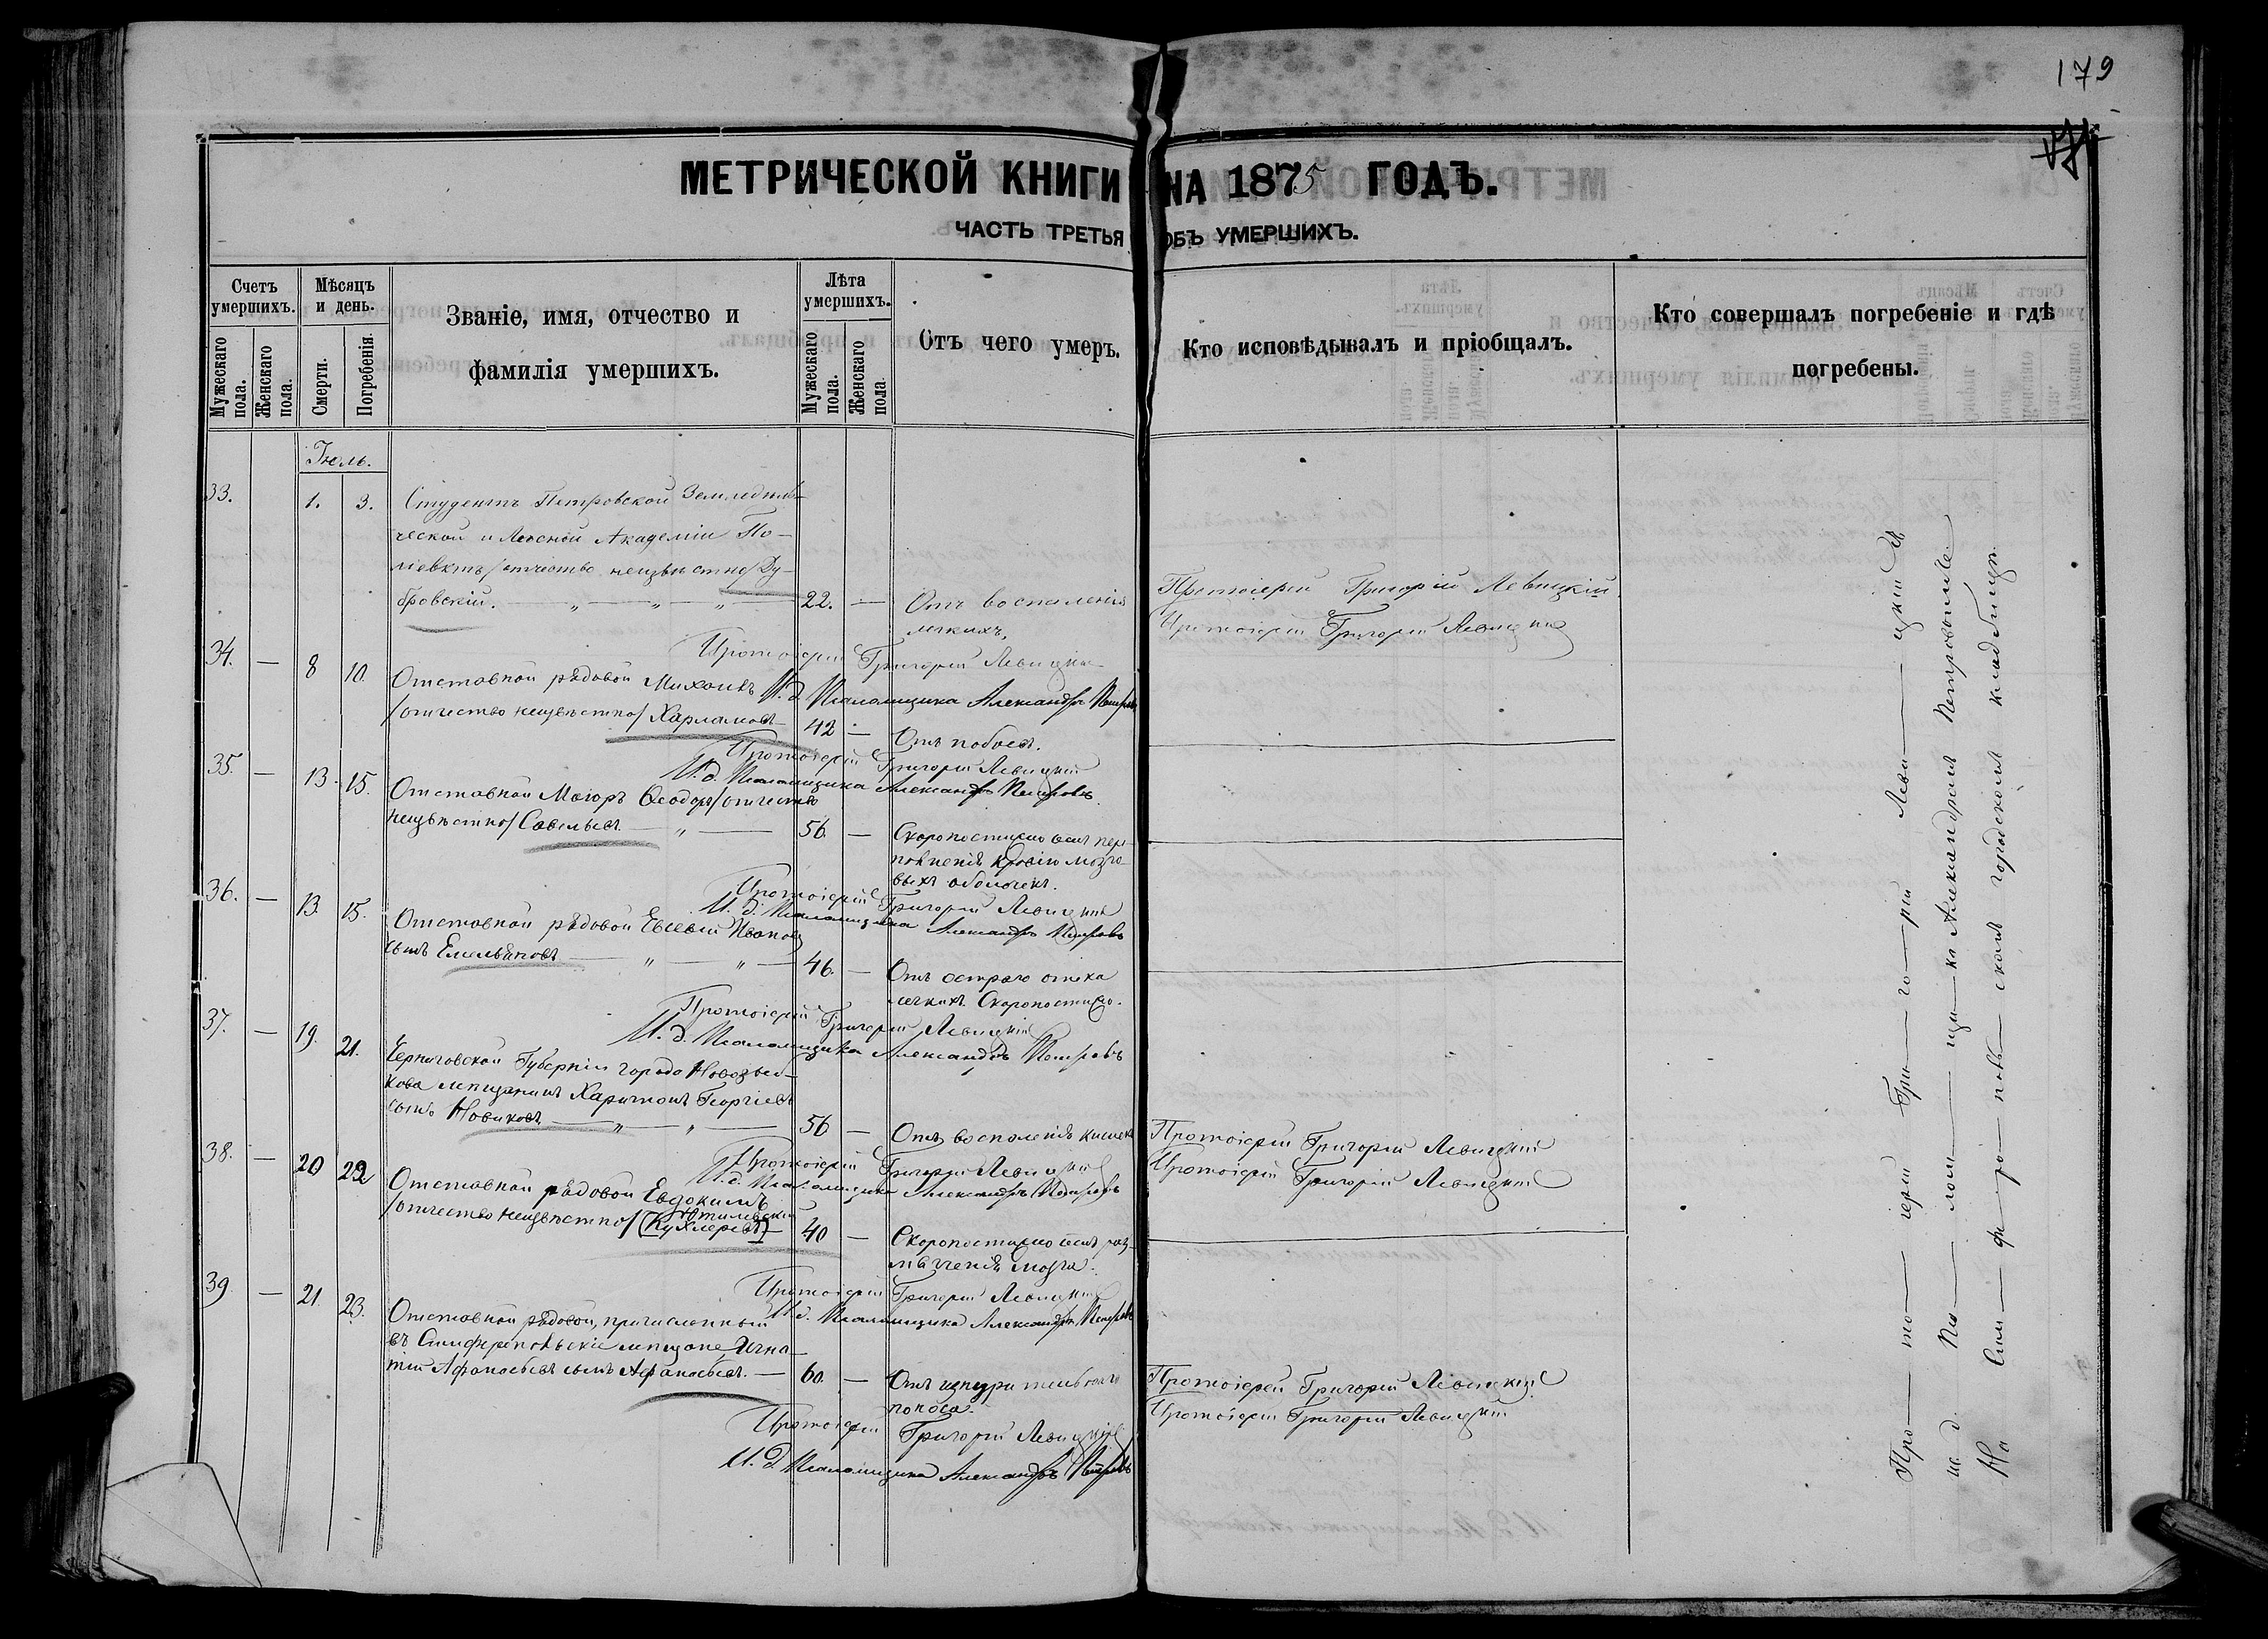 179
МЕТРИЧЕСКОЙ КНИГИ НА 1875 ГОДЪ.
ЧАСТЬ ТРЕТЬЯ ОБЪ УМЕРШИХЪ.
Счетъ умершихъ.
Мужескаго пола.
Женскаго пола.
Мѣсяцъ и день.
Смерти.
Погребенія.
Званіе, имя, отчество и
фамилія умершихъ.
Лѣта умершихъ.
Мужескаго пола.
Женскаго пола.
Отъ чего умеръ.
Кто исповѣдывалъ и пріобщалъ.
Кто совершалъ погребеніе и гдѣ
погребены.
Іюль.
33. 1. 3. Студентъ Петровской Земледѣль-
ческой и Лѣсной Академіи По-
ліевктъ /отчество неизвѣстно/ Ду-
бровскій. — „ — „ — „ — 22. — Отъ воспаленія Протоіерей Григорій Левицкій
легкихъ, Протоіерей Григорій Левицкій
Протоіерей Григорій Левицкій
34. — 8 10. Отставной рядовой Михаилъ И. д. Псаломщика Александръ Петровъ
/отчество неизвѣстно/ Харламовъ — 42 — Отъ побоевъ.
Протоіерей Григорій Левицкій
И. д. Псаломщика Александръ Петровъ
35. — 13. 15. Отставной Маіоръ Ѳеодоръ /отчество
неизвѣстно/ Савельевъ — „ — 56. — Скоропостижно отъ пере-
полненія кровію мозго-
выхъ оболочекъ.
Протоіерей Григорій Левицкій
И. д. Псаломщика Александръ Петровъ
36. — 13. 15. Отставной рядовой Евсевій Ивановъ
сынъ Емельяновъ — „ — „ — 46. — Отъ остраго отека
легкихъ. Скоропостижно.
Протоіерей Григорій Левицкій
И. д. Псаломщика Александръ Петровъ
37. — 19. 21. Черниговской Губерніи города Новозыб-
кова мѣщанинъ Харитонъ Георгіевъ
сынъ Новиковъ — „ — „ — 56 — Отъ воспаленія кишекъ Протоіерей Григорій Левицкій
Протоіерей Григорій Левицкій
Протоіерей Григорій Левицкій
И. д. Псаломщика Александръ Петровъ
38. — 20 22 Отставной рядовой Евдокимъ
/отчество неизвѣстно/ (Кухлеревъ) — 40 — Скоропостижно отъ раз-
мягченія мозга.
Протоіерей Григорій Левицкій
И. д. Псаломщика Александръ Петровъ
39 — 21 23. Отставной рядовой, причисленный
въ Симферопольскіе мѣщане, Игна-
тій Афанасьевъ сынъ Афанасьевъ. — 60. — Отъ изнурительнаго Протоіерей Григорій Левицкій
поноса. Протоіерей Григорій Левицкій
Протоіерей Григорій Левицкій
И. д. Псаломщика Александръ Петровъ
Про — то — іерей Гри — го — рій Леви — цкій съ
и. д. Пса — лом — щи — ка Александромъ Петровымъ.
На Сим — фе — ро — поль — скомъ городскомъ кладбищѣ.